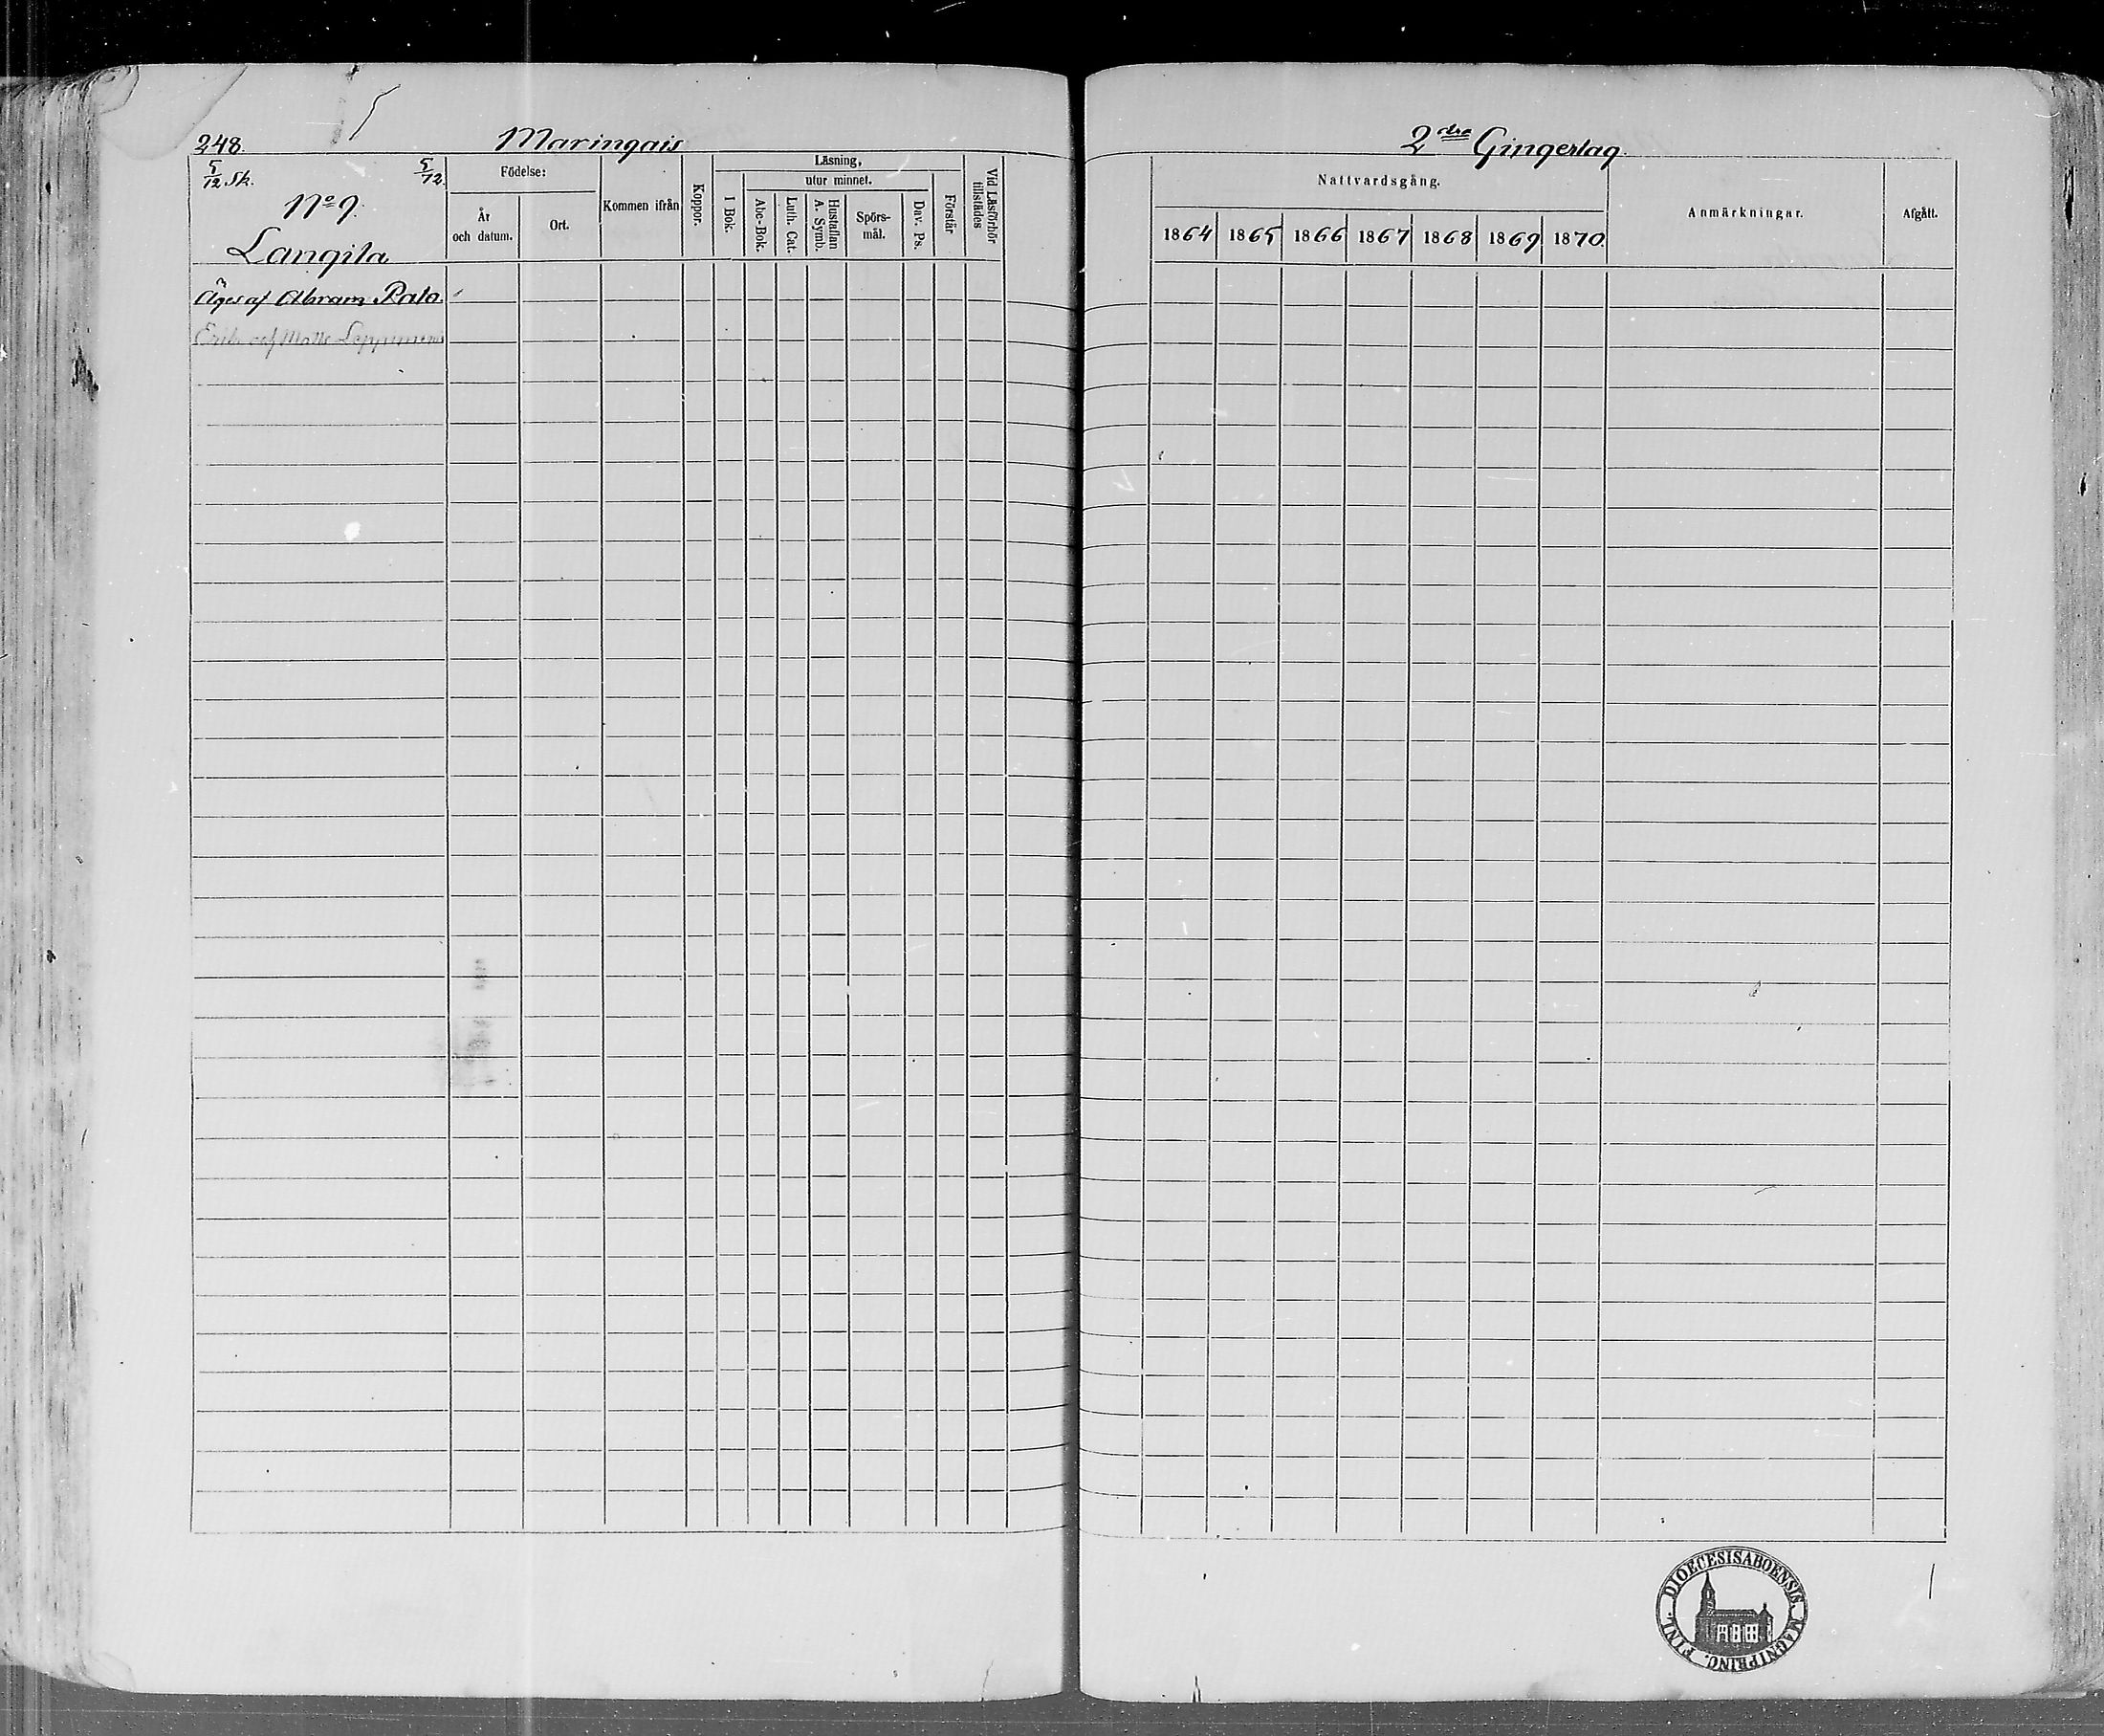 248. Maringais
5/12 Sk. 5/12.
No 9.
Langila
Äges af Abram Rato.
Erik af Matts
Födelse:
År
och datum.
Ort.
Kommen ifrån
Koppor.
Läsning,
utur minnet.
I Bok.
Abc-Bok.
Luth. Cat.
Hustaflan
A. Symb.
Spörs-
mål.
Dav. Ps.
Förstår
Vid Läsförhör
tillstädes
2dra Gingerlag
Nattvardsgång.
1864 1865 1866 1867 1868 1869 1870
Anmärkningar.
Afgått.
DIOECESIS ABOENSIS. MAGNI PRINC. FINL.